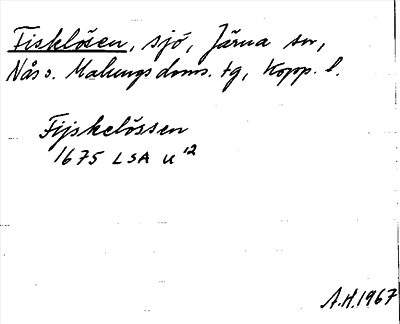 Fisklösen, sjö, Järna sn,
Nås o. Malungs doms. tg, Kopp. l.
Fijskelössen
1675 LSA U12
A.H. 1967